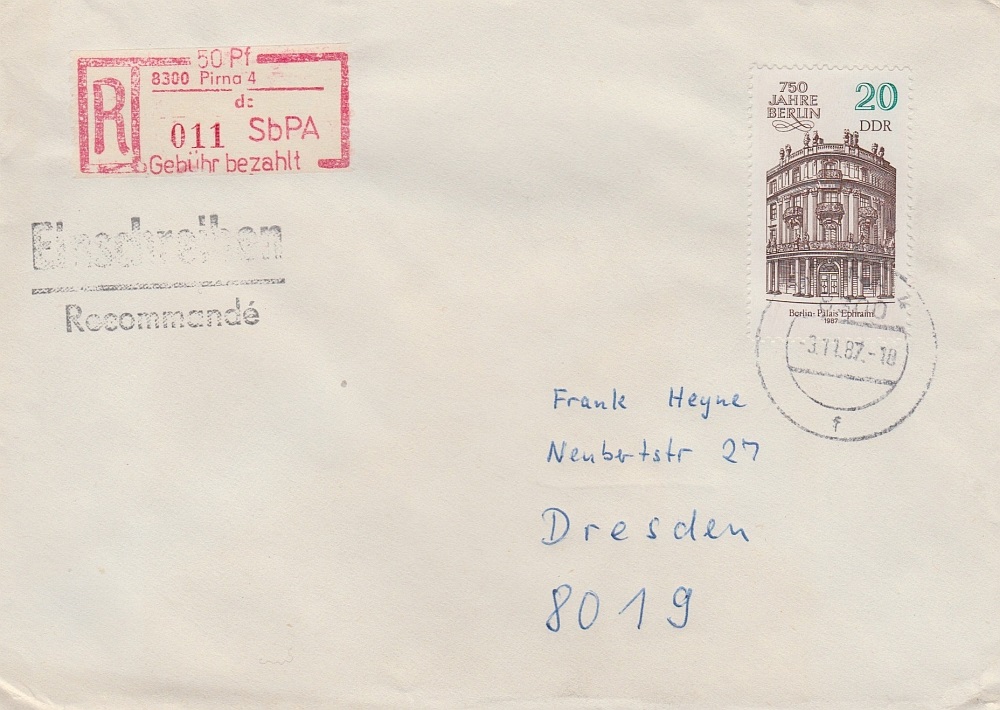 50 Pf
8300 Pirna 4
dc
011 SbPA
Gebühr bezahlt
R
Einschreiben
Recommandé
750
JAHRE
BERLIN
20
DDR
Berlin·Palais Ephraim
1987
-3.11.87.-18
f
Frank Heyne
Neubertstr 27
Dresden
8019